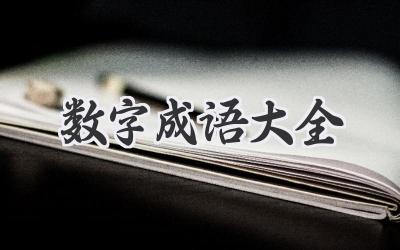 数字成语大全